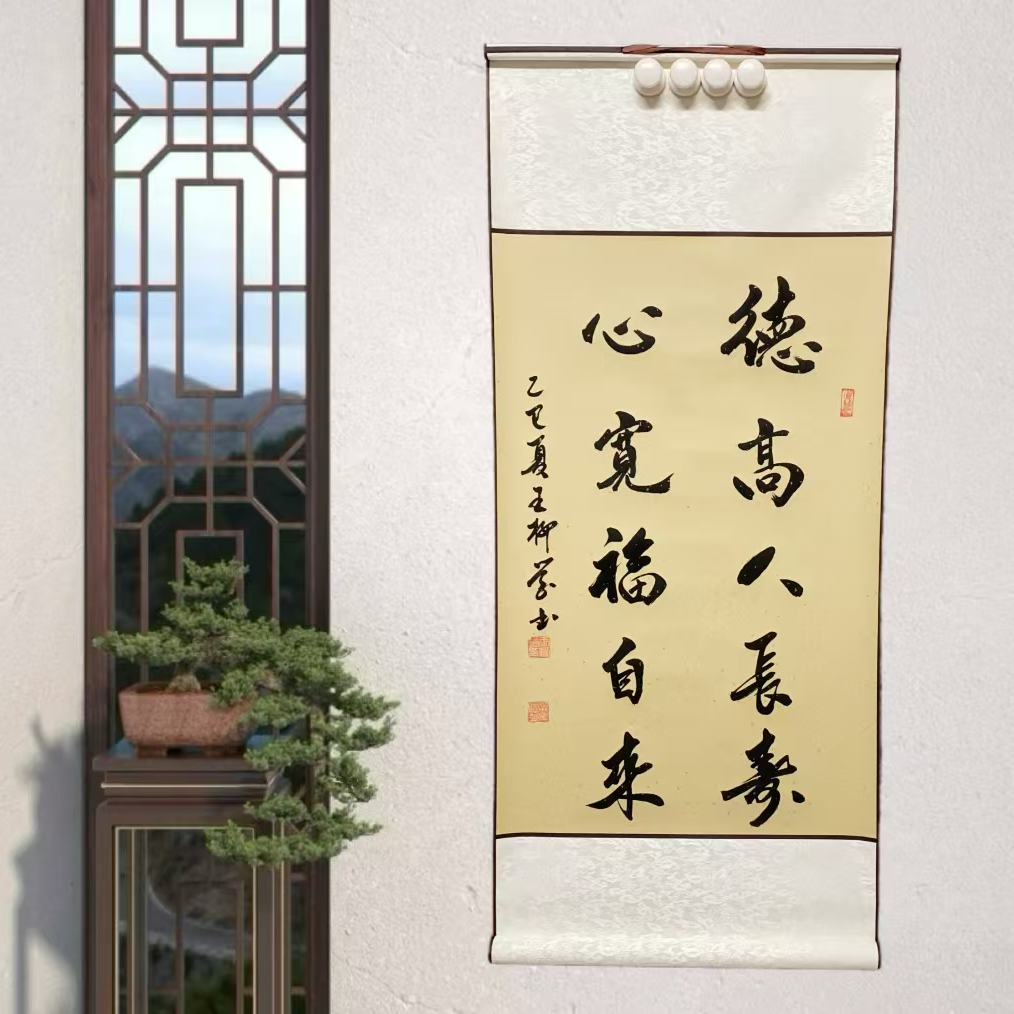 德高人長壽
心寬福自来
乙巳夏王柳學书